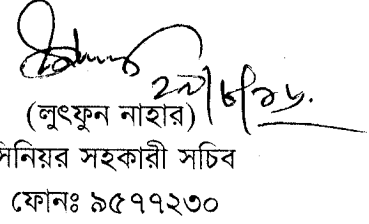 ২৯/৮/১৬.
(লুৎফুন নাহার)
সিনিয়র সহকারী সচিব
ফোনঃ ৯৫৭৭২৩০